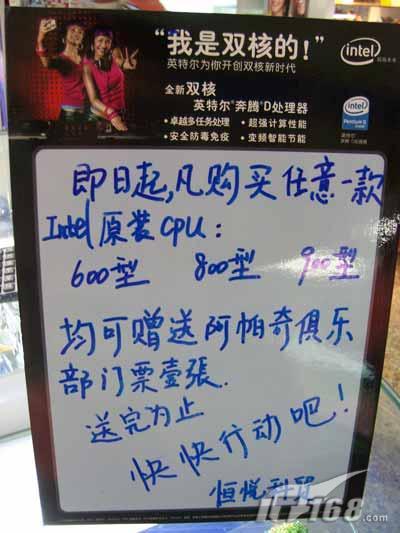 “我是双核的！”
英特尔为你开创双核新时代
intel
全新 双核
英特尔®奔腾®D处理器
• 卓越多任务处理 • 超强计算性能
• 安全防毒免疫 • 变频智能节能
intel
Pentium D
即日起,凡购买任意一款
Intel 原装CPU：
600型 800型 900型
均可赠送阿帕奇俱乐
部门票壹張.
送完为止
快快行动吧！
恒悦科贸
IT168.com